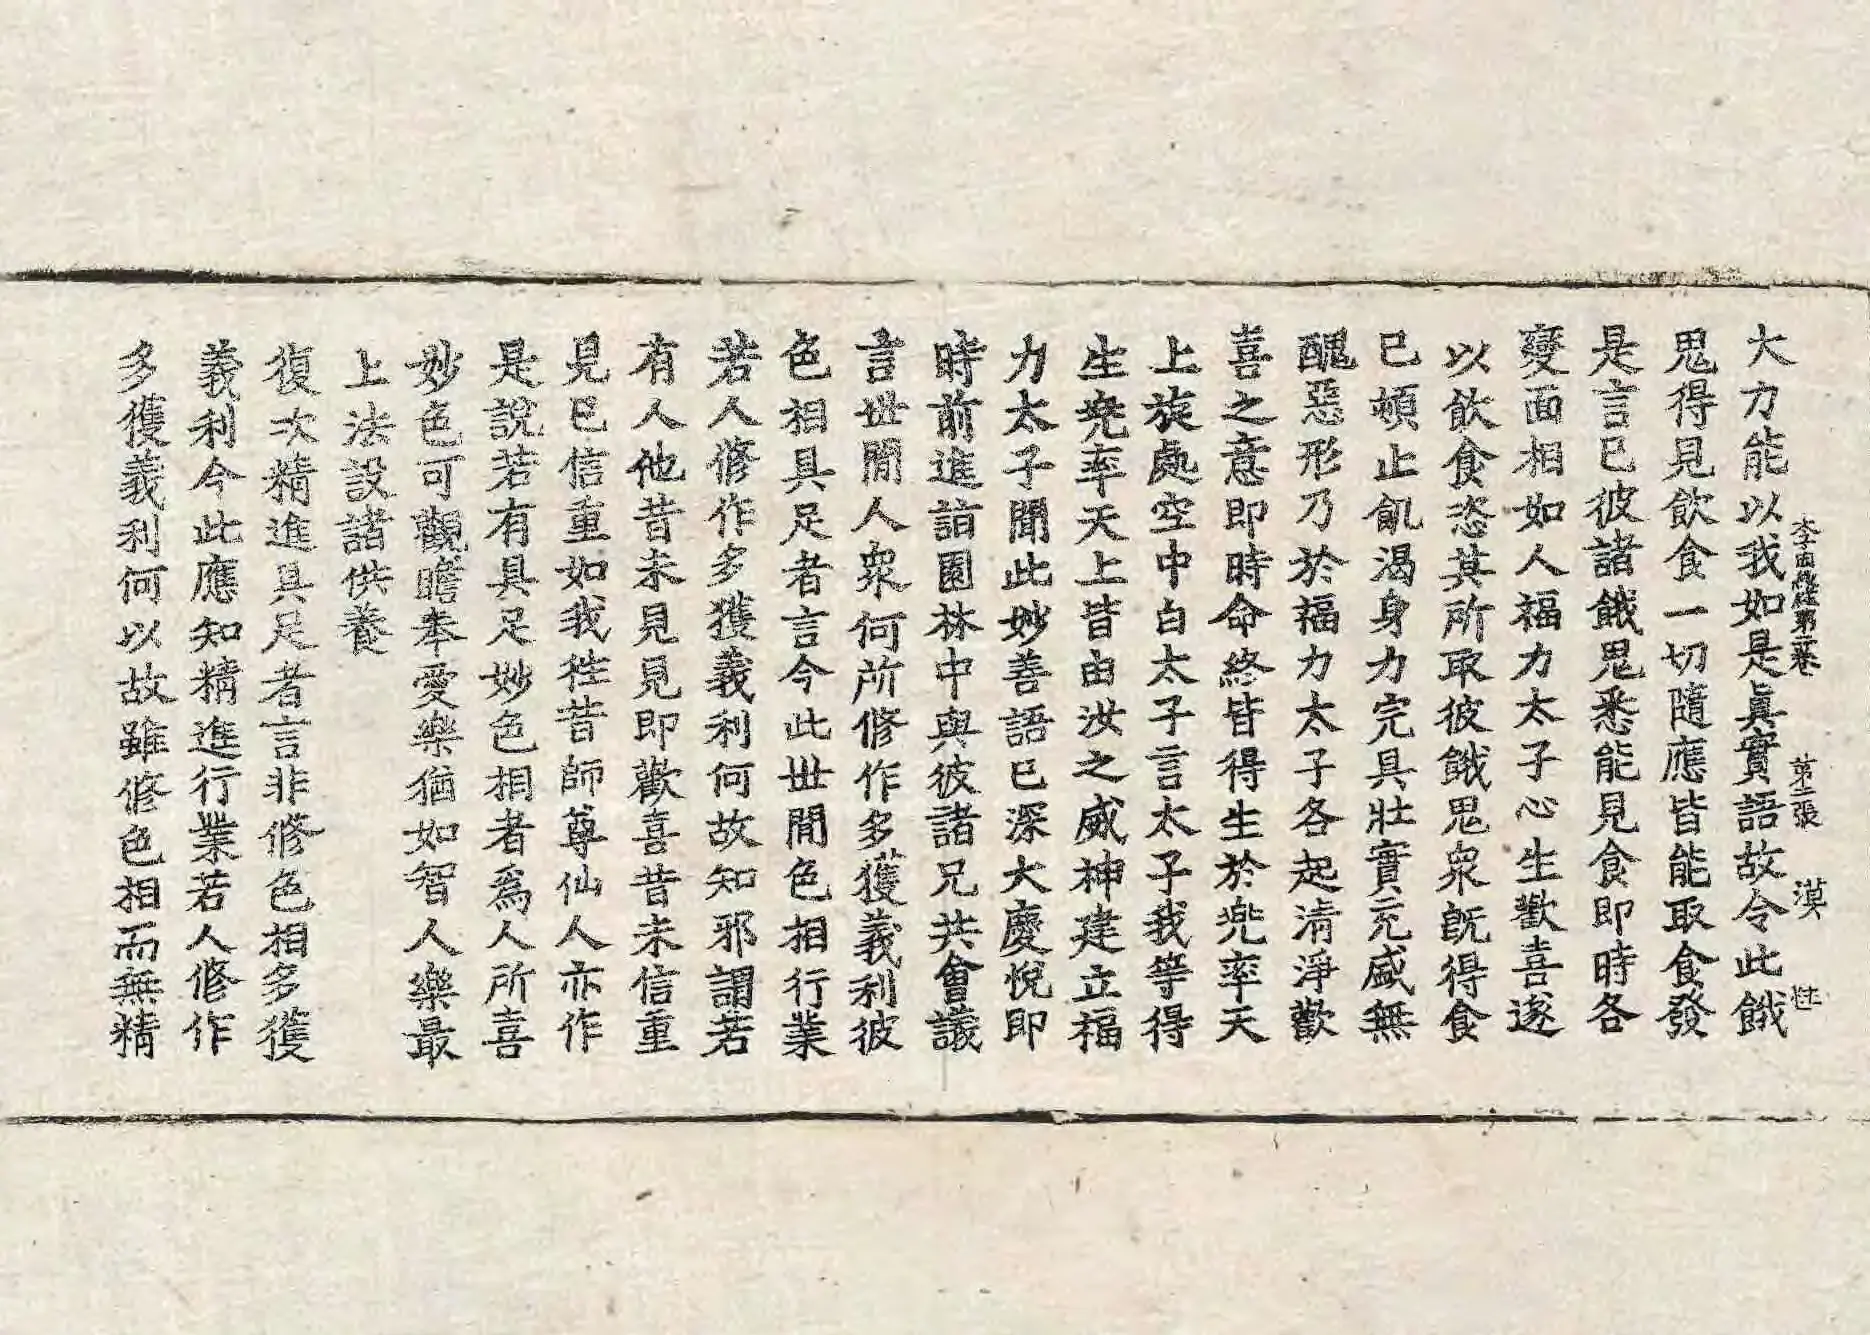 大力能以我如是眞實語故令此餓
鬼得見飲食一切隨應皆能取食發
是言已彼諸餓鬼悉能見食即時各
變面相如人福力太子心生歡喜遂
以飲食恣其所取彼餓鬼衆旣得食
已頓止飢渴身力完具壯實充盛無
醜惡形乃於福力太子各起淸淨歡
喜之意即時命終皆得生於兜率天
上旋處空中白太子言太子我等得
生兜率天上皆由汝之威神建立福
力太子聞此妙善語已深大慶悅即
時前進詣園林中與彼諸兄共會議
言世閒人衆何所修作多獲義利彼
色相具足者言今此世閒色相行業
若人修作多獲義利何故知邪謂若
有人他昔未見見即歡喜昔未信重
見已信重如我徃昔師尊仙人亦作
是說若有具足妙色相者爲人所喜
妙色可觀瞻奉愛樂猶如智人樂最
上法設諸供養
復次精進具足者言非修色相多獲
義利今此應知精進行業若人修作
多獲義利何以故雖修色相而無精